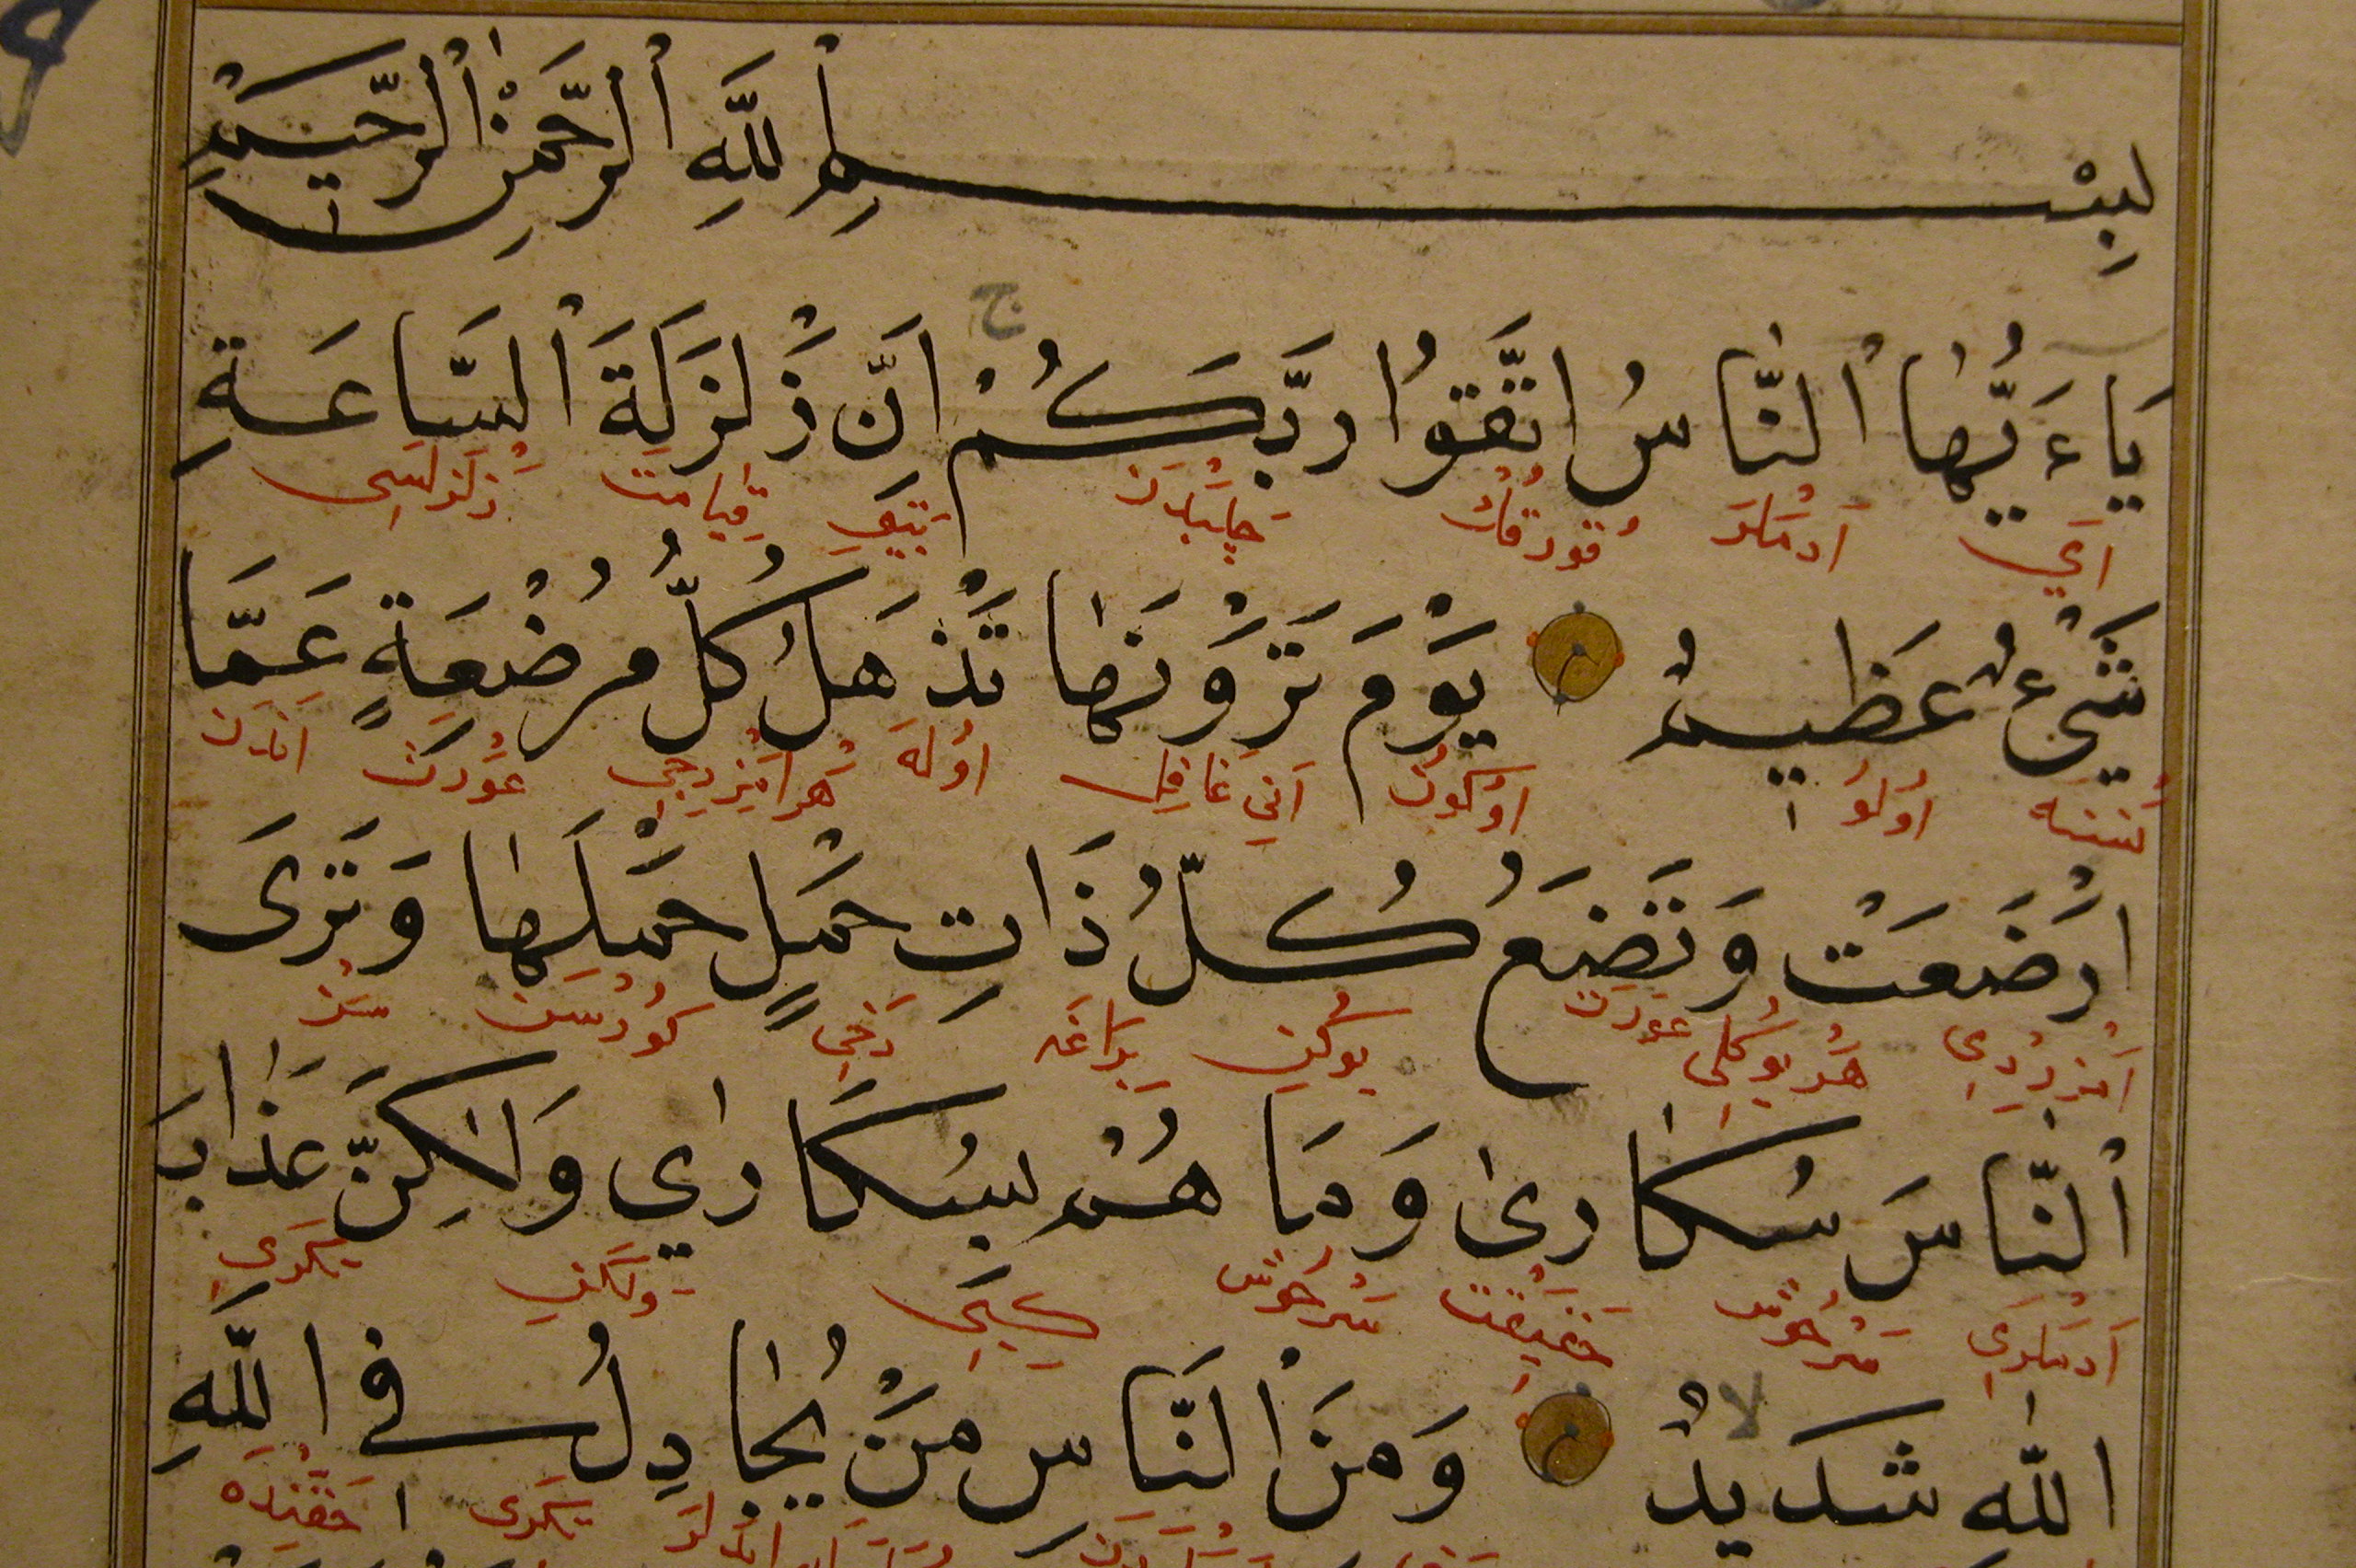 بِسْمِ اللَّهِ الرَّحْمٰنِ الرَّحِيمِ
يَاءَيُّهَا النَّاسُ اتَّقُوا رَبَّكُمْ اِنَّ زَلْزَلَةَ السَّاعَةِ
اَيْ اَدَمْلَرْ قُورْقُكْ چَلَبُكُزْدَنْ قِيَامَتْ زَلْزَلَسِى
شَىْءٌ عَظِيمٌ يَوْمَ تَرَوْنَهَا تَذْهَلُ كُلُّ مُرْضِعَةٍ عَمَّا
نَسْنَه اُولُو اَنِي غَافِلْ اُولَه هَرْ اَمْزِرِجِي عَوْرَتْ اَنْدَنْ
اَرْضَعَتْ وَتَضَعُ كُلُّ ذَاتِ حَمْلٍ حَمْلَهَا وَتَرَى
اَمْزُرْدِي هَرْ يُوكْلِي عَوْرَتْ يُوكِنْ بِرَاغَه دَخِي كُورُرْسَنْ سَنْ
النَّاسَ سُكَارٰى وَمَا هُمْ بِسُكَارٰي وَلٰكِنَّ عَذَابَ
اَدَمْلَرِي سَرْخُوشْ حَقِيقَتْ سَرْخُوشْ كَبِي وَلَكِنْ تَكْرِي
اللّٰهِ شَدِيدٌ وَمِنَ النَّاسِ مَنْ يُجَادِلُ فِي اللّٰهِ
تَكْرِي حَقِّنْدَه